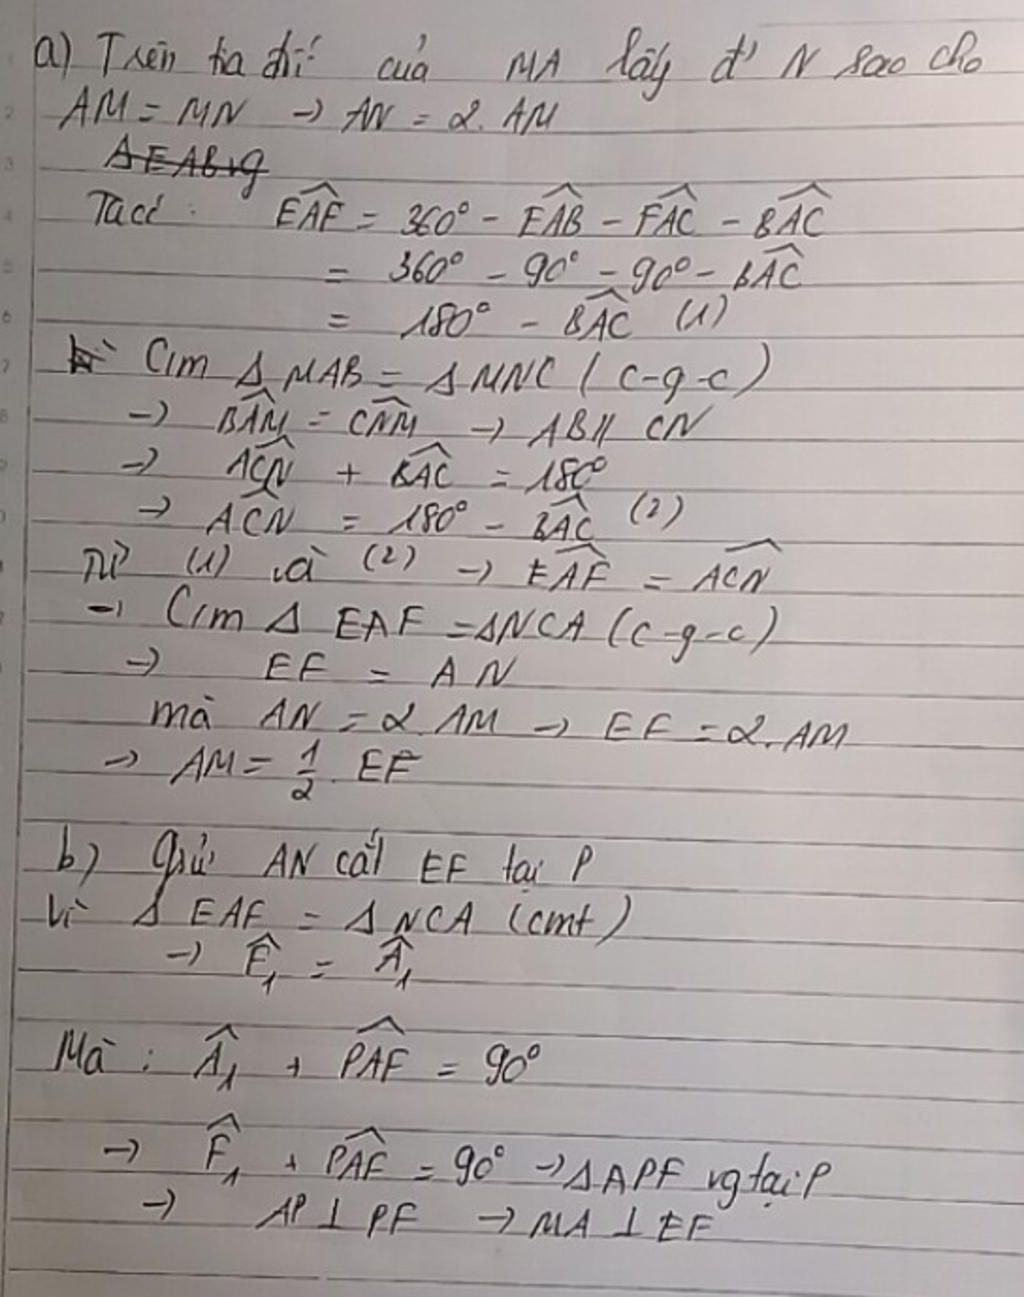 a) Trên tia đối của MA lấy đ' N sao cho
AM = MN → AN = 2. AM
Ta có : EAF = 360° - EAB - FAC - BAC
= 360° - 90° - 90° - BAC
= 180° - BAC (1)
C/m Δ MAB = Δ MNC ( c-g-c )
→ BAM = CNM → AB // CN
→ ACN + BAC = 180°
→ ACN = 180° - BAC (2)
Từ (1) và (2) → EAF = ACN
→ C/m Δ EAF = ΔNCA (c-g-c)
→ EF = AN
mà AN = 2. AM → EF = 2. AM
→ AM = 1/2 . EF
b) Giả sử AN cắt EF tại P
Vì Δ EAF = Δ NCA (cmt)
→ F̂₁ = Â₁
Mà : Â₁ + PAF = 90°
→ F̂₁ + PAF = 90° → Δ APF vg tại P
→ AP ⊥ PF → MA ⊥ EF